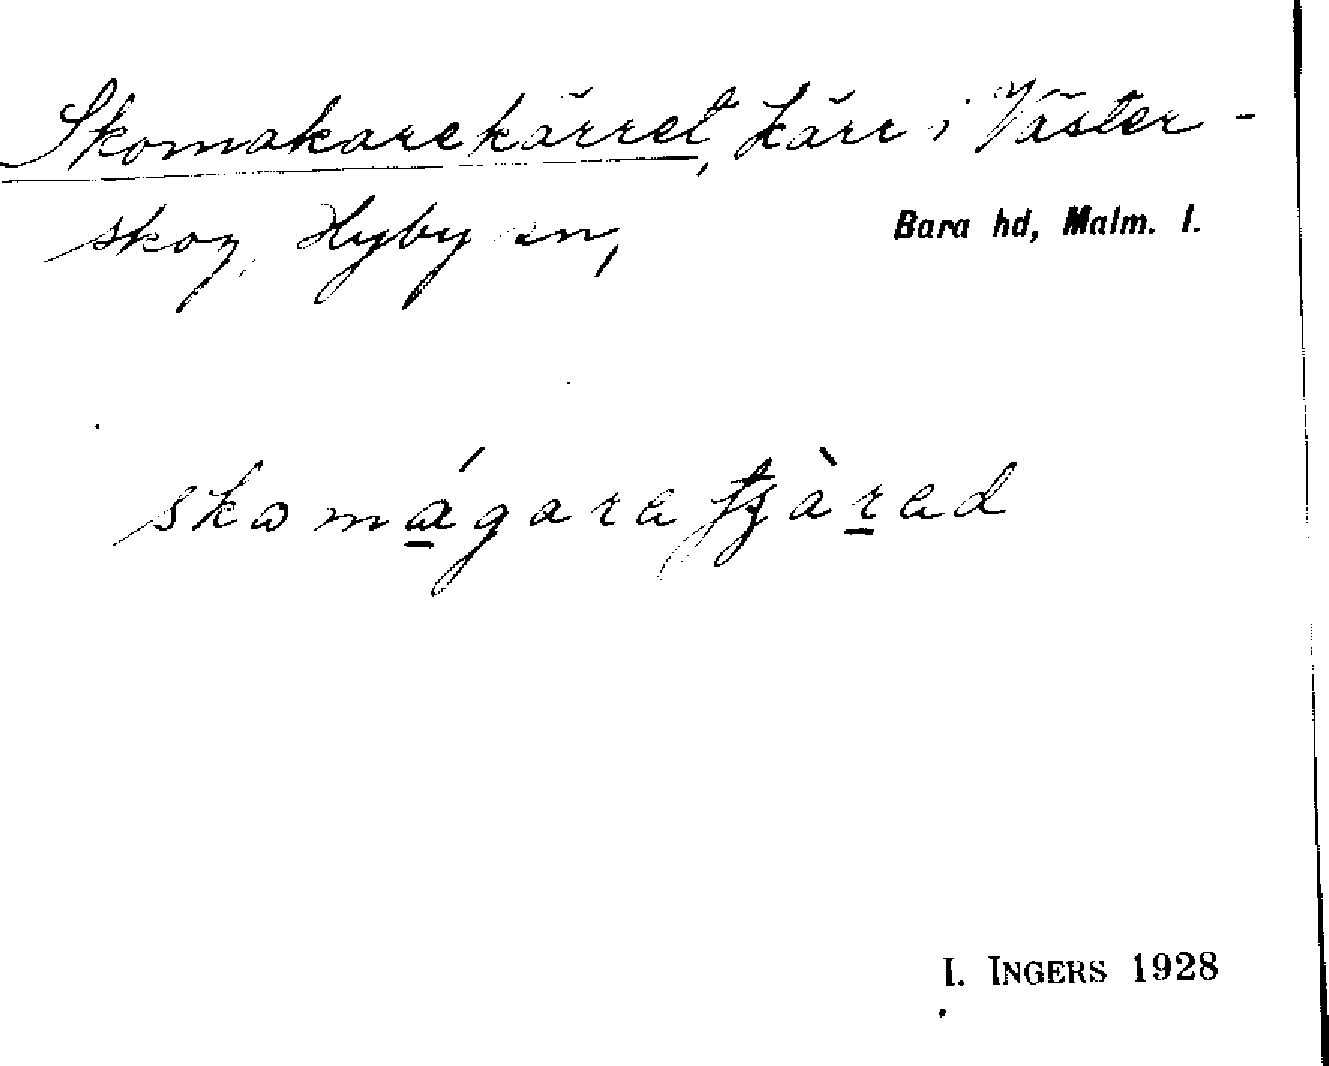 Skomakarekärret, kärr i Väster-
skog, Hyby sn,
Bara hd, Malm. l.
skomágara tʒàrad
I. INGERS 1928